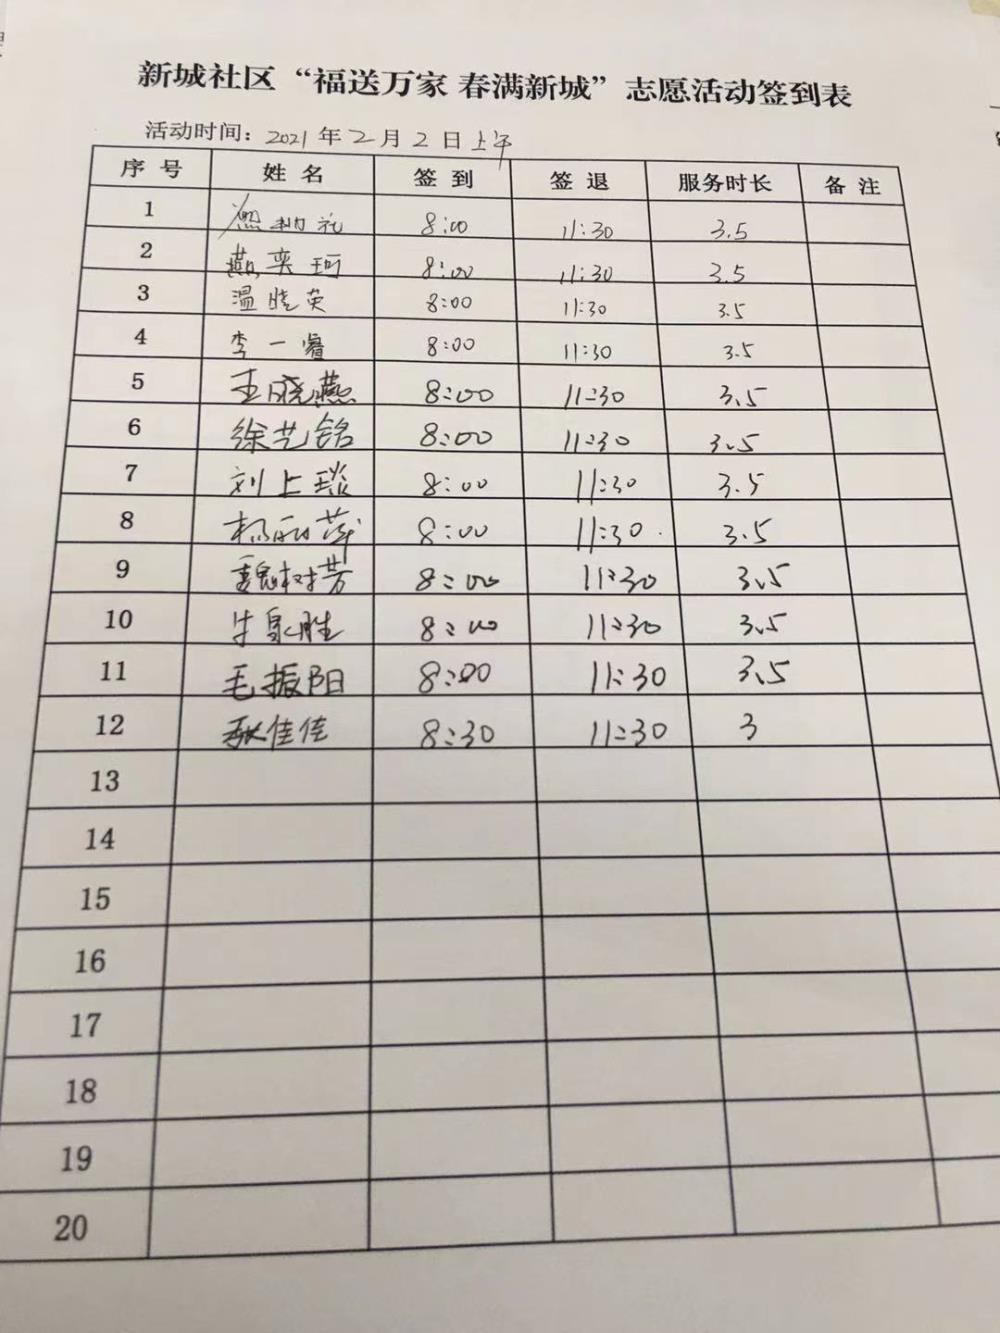 新城社区“福送万家 春满新城”志愿活动签到表
活动时间：2021年2月2日上午
序号 姓名 签到 签退 服务时长 备注
1 8:00 11:30 3.5
2 燕奕珂 8:00 11:30 3.5
3 温晓英 8:00 11:30 3.5
4 李一睿 8:00 11:30 3.5
5 王晓燕 8:00 11:30 3.5
6 徐艺铭 8:00 11:30 3.5
7 刘上琰 8:00 11:30 3.5
8 杨丽萍 8:00 11:30 3.5
9 魏树芳 8:00 11:30 3.5
10 牛泉胜 8:00 11:30 3.5
11 毛振阳 8:00 11:30 3.5
12 耿佳佳 8:30 11:30 3
13
14
15
16
17
18
19
20